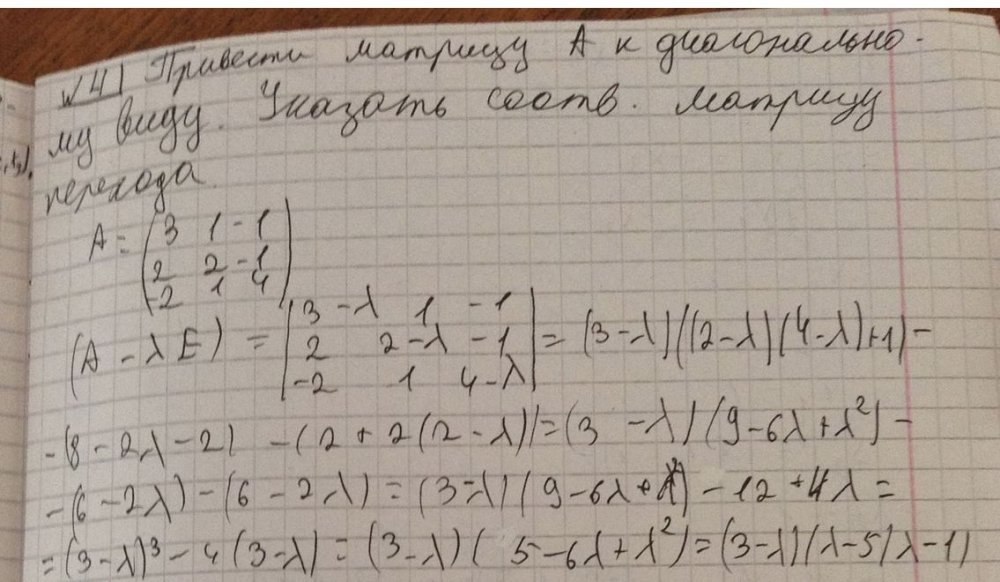 №4 Привести матрицу А к диагонально-
му виду. Указать соотв. матрицу
перехода.
A = (3 1 -1
2 2 -1
-2 1 4)
(A - λE) = |3-λ 1 -1
2 2-λ -1
-2 1 4-λ| = (3-λ)((2-λ)(4-λ)+1) -
-(8-2λ-2) -(2+2(2-λ)) = (3-λ)(9-6λ+λ²) -
-(6-2λ)-(6-2λ) = (3-λ)(9-6λ+λ²) -12+4λ =
= (3-λ)³ - 4(3-λ) = (3-λ)(5-6λ+λ²) = (3-λ)(λ-5)(λ-1)